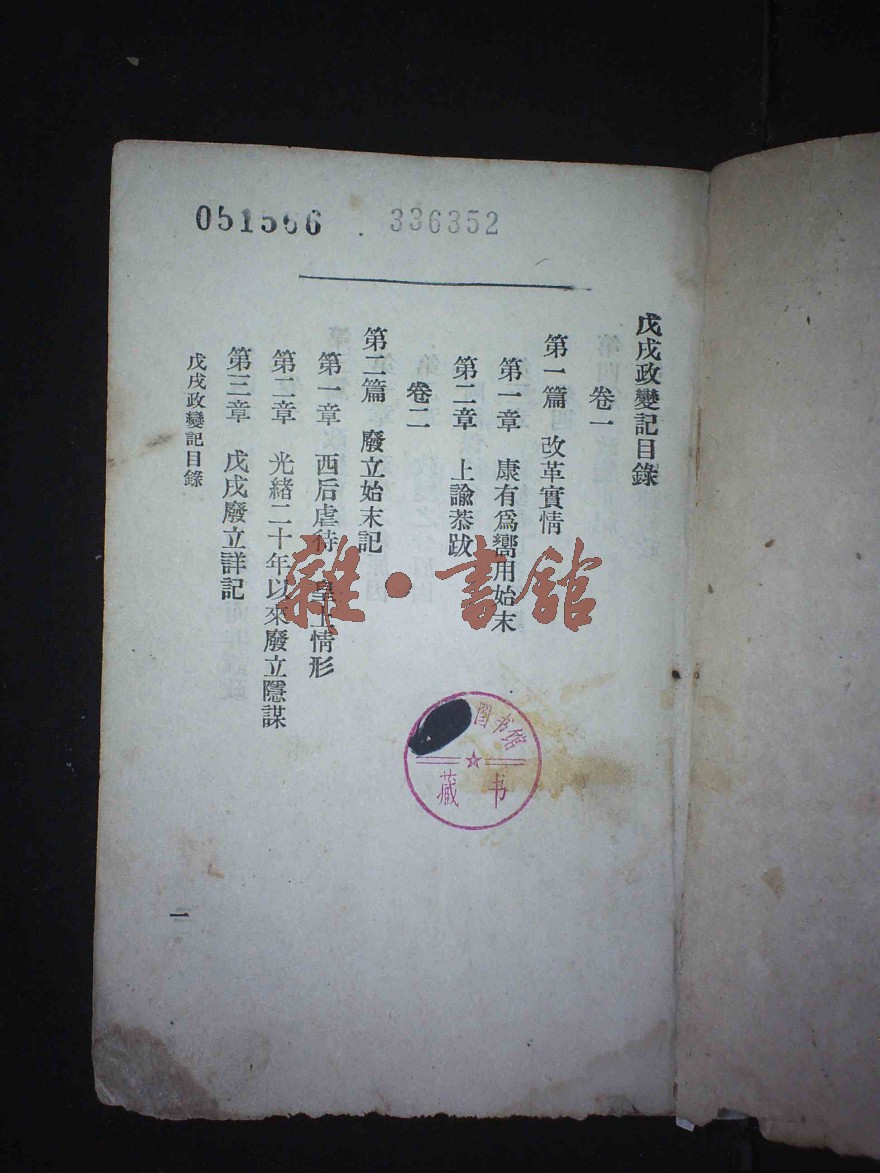 051566 336352
戊戌政變記目錄
卷一
第一篇 改革實情
第一章 康有爲嚮用始末
第二章 上諭恭跋
卷二
第二篇 廢立始末記
第一章 西后虐待 皇上情形
第二章 光緒二十年以來廢立隱謀
第三章 戊戌廢立詳記
戊戌政變記目錄
一
雜·書館
图书馆
藏书